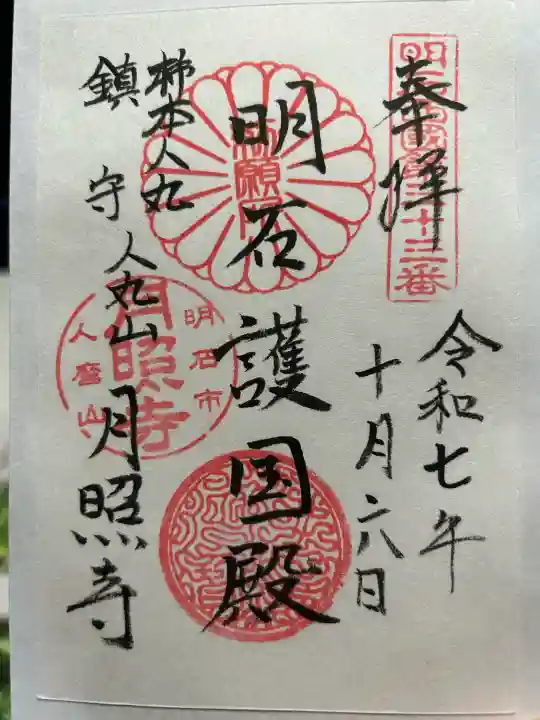 奉拝
令和七年
十月六日
明石護国殿
柿本人丸
鎮守
人丸山月照寺
勅願所
月照寺
明石市
人麿山